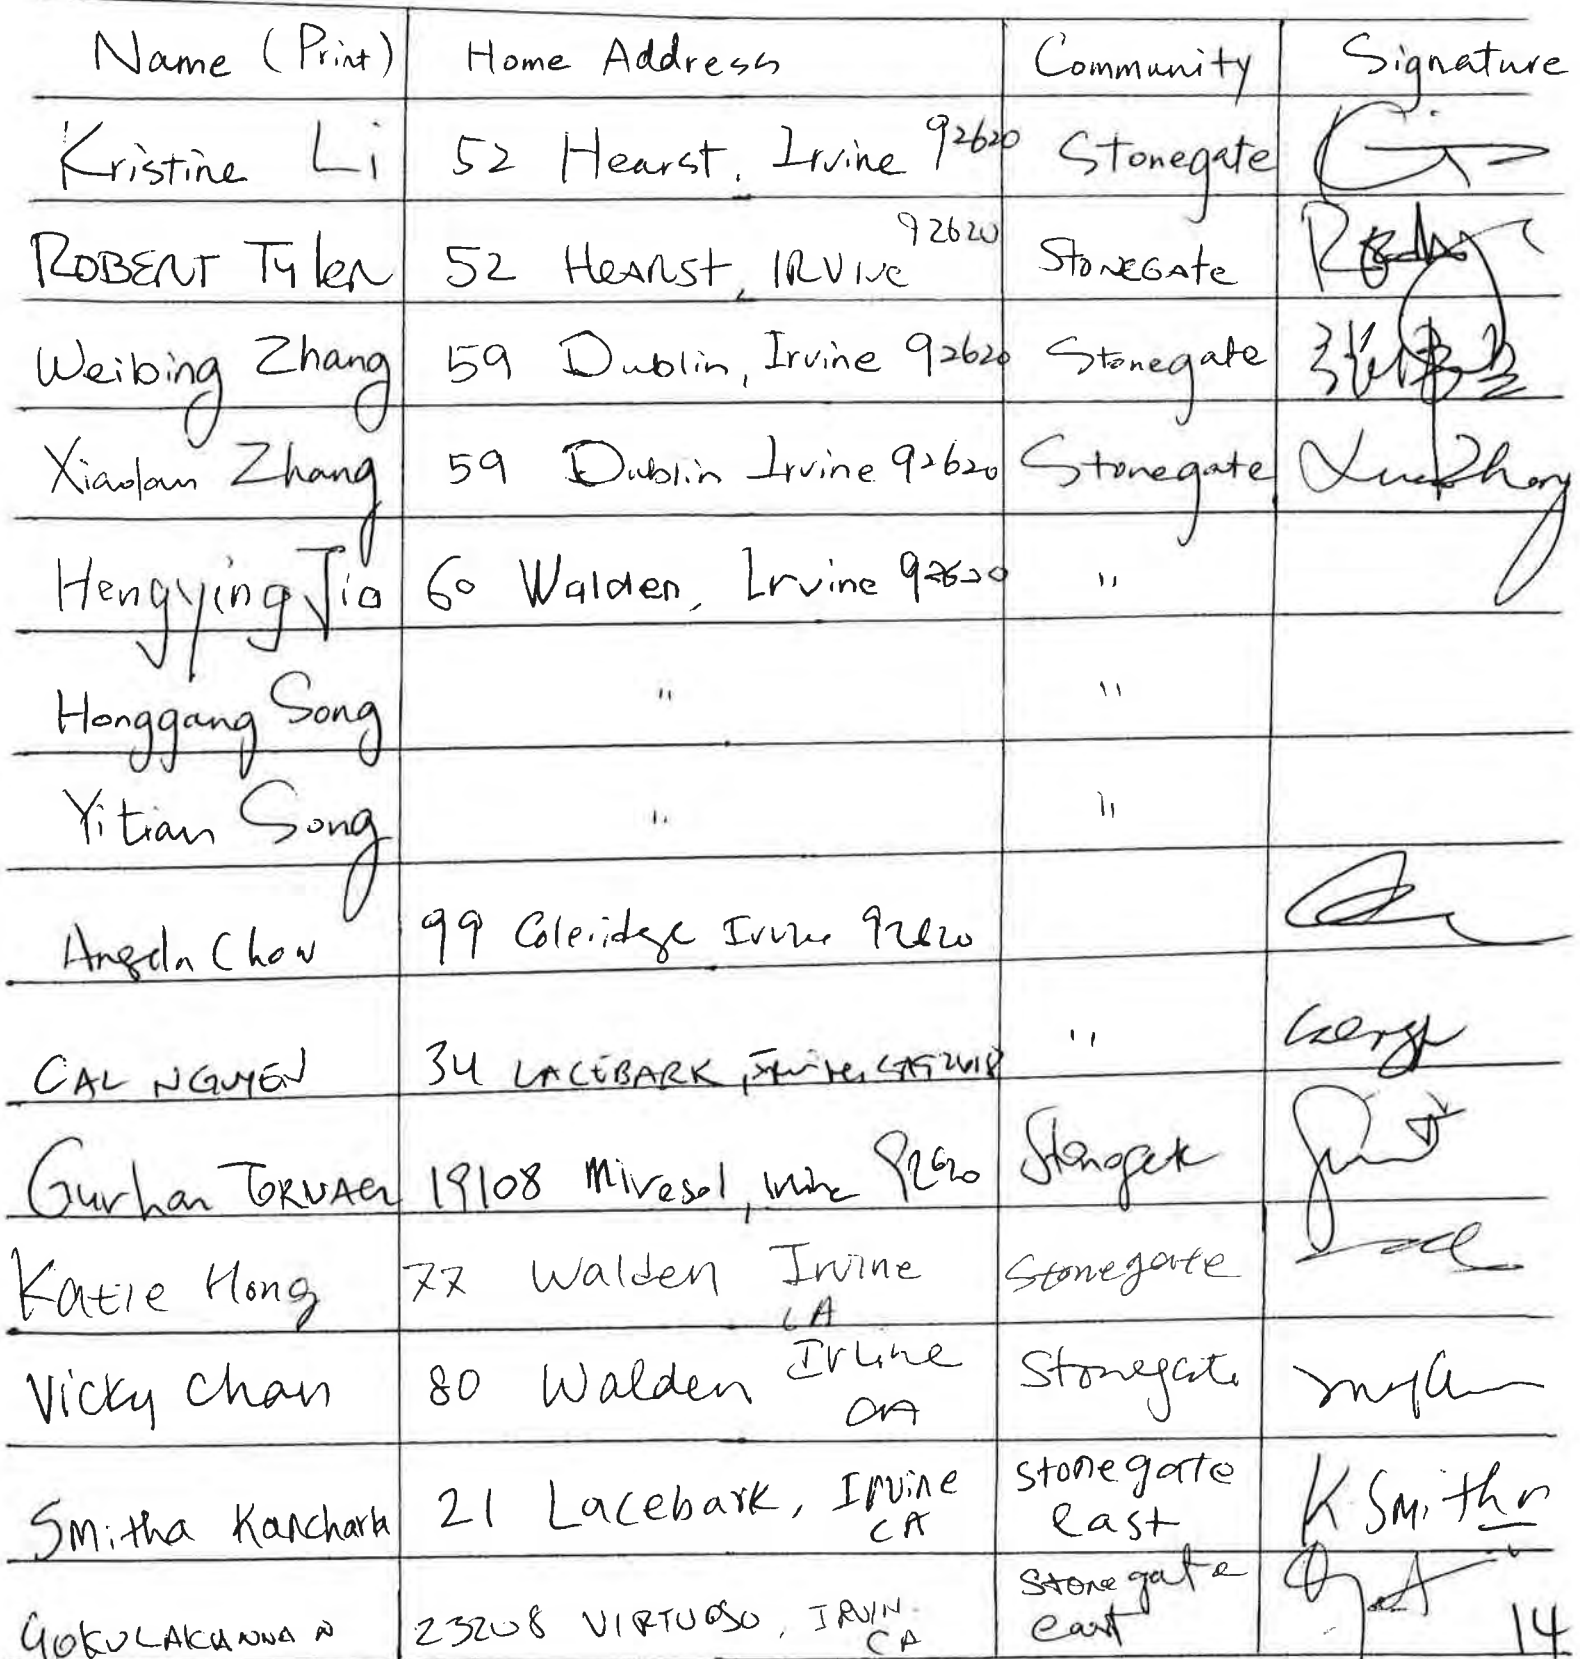 Name (Print) Home Address Community Signature
Kristine Li 52 Hearst, Irvine 92620 Stonegate
ROBERT Tyler 52 Hearst, IRVINE 92620 StoneGate
Weibing Zhang 59 Dublin, Irvine 92620 Stonegate
Xiaolan Zhang 59 Dublin Irvine 92620 Stonegate
Hengying Jia 60 Walden, Irvine 92620 "
Honggang Song " "
Yitian Song " "
Angela Chow 99 Coleridge Irvine 92620
CAL NGUYEN 34 LACEBARK, Irvine, CA 92618 "
Gurhan 19108 Mirasol, Irvine 92620 Stonegate
Katie Hong 77 Walden Irvine CA Stonegate
Vicky Chan 80 Walden Irvine CA Stonegate
Smitha Kancharla 21 Lacebark, Irvine CA Stonegate east K Smitha
GOKULAKANNAN 23208 VIRTUOSO, IRVIN. CA Stonegate east
14